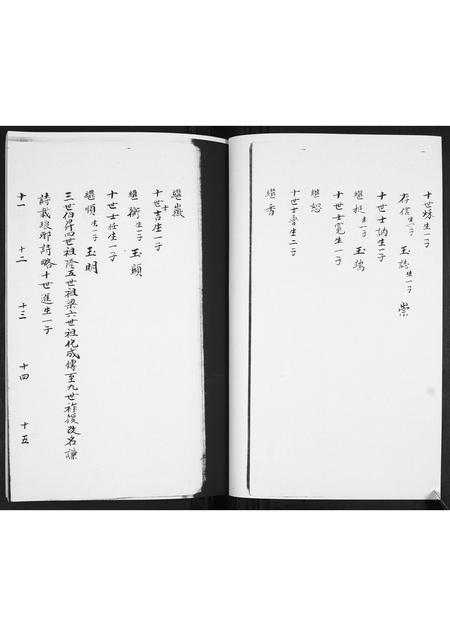 十世蛛生一子
存信生一子 玉誌生一子 崇
十世士訥生一子
繼挺生一子 玉瑞
十世士寬生一子
繼恕
十世士魯生二子
繼香
繼嶽
十世士吉生一子
繼術生一子 玉顯
十世士任生一子
繼順生一子 玉明
三世伯昇四世祖隆五世祖梁六世祖化成傳至九世祚後改名謙
詩載琅耶詩略十世進生一子
十一 十二 十三 十四 十五